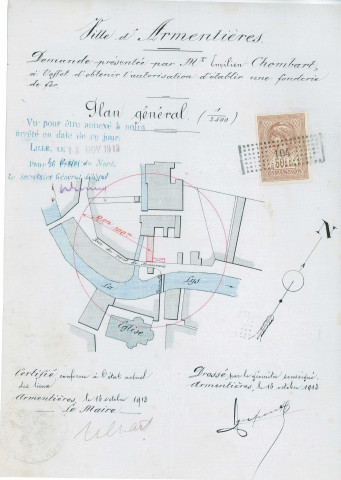 Ville d'Armentières.
Demande présentée par Mr Emilien Chombart,
à l'effet d'obtenir l'autorisation d'établir une fonderie
de fer.
Plan général. (1/2500)
Vu pour être annexé à notre
arrêté en date de ce jour.
LILLE, le NOV 1913
Pour le Préfet du Nord,
Le Secrétaire Général
Rayon 100m
La Lys
Eglise
N
Certifié conforme à l'état actuel
des lieux
Armentières, le 18 octobre 1913
Le Maire
Dressé par le géomètre soussigné
Armentières, le 15 octobre 1913